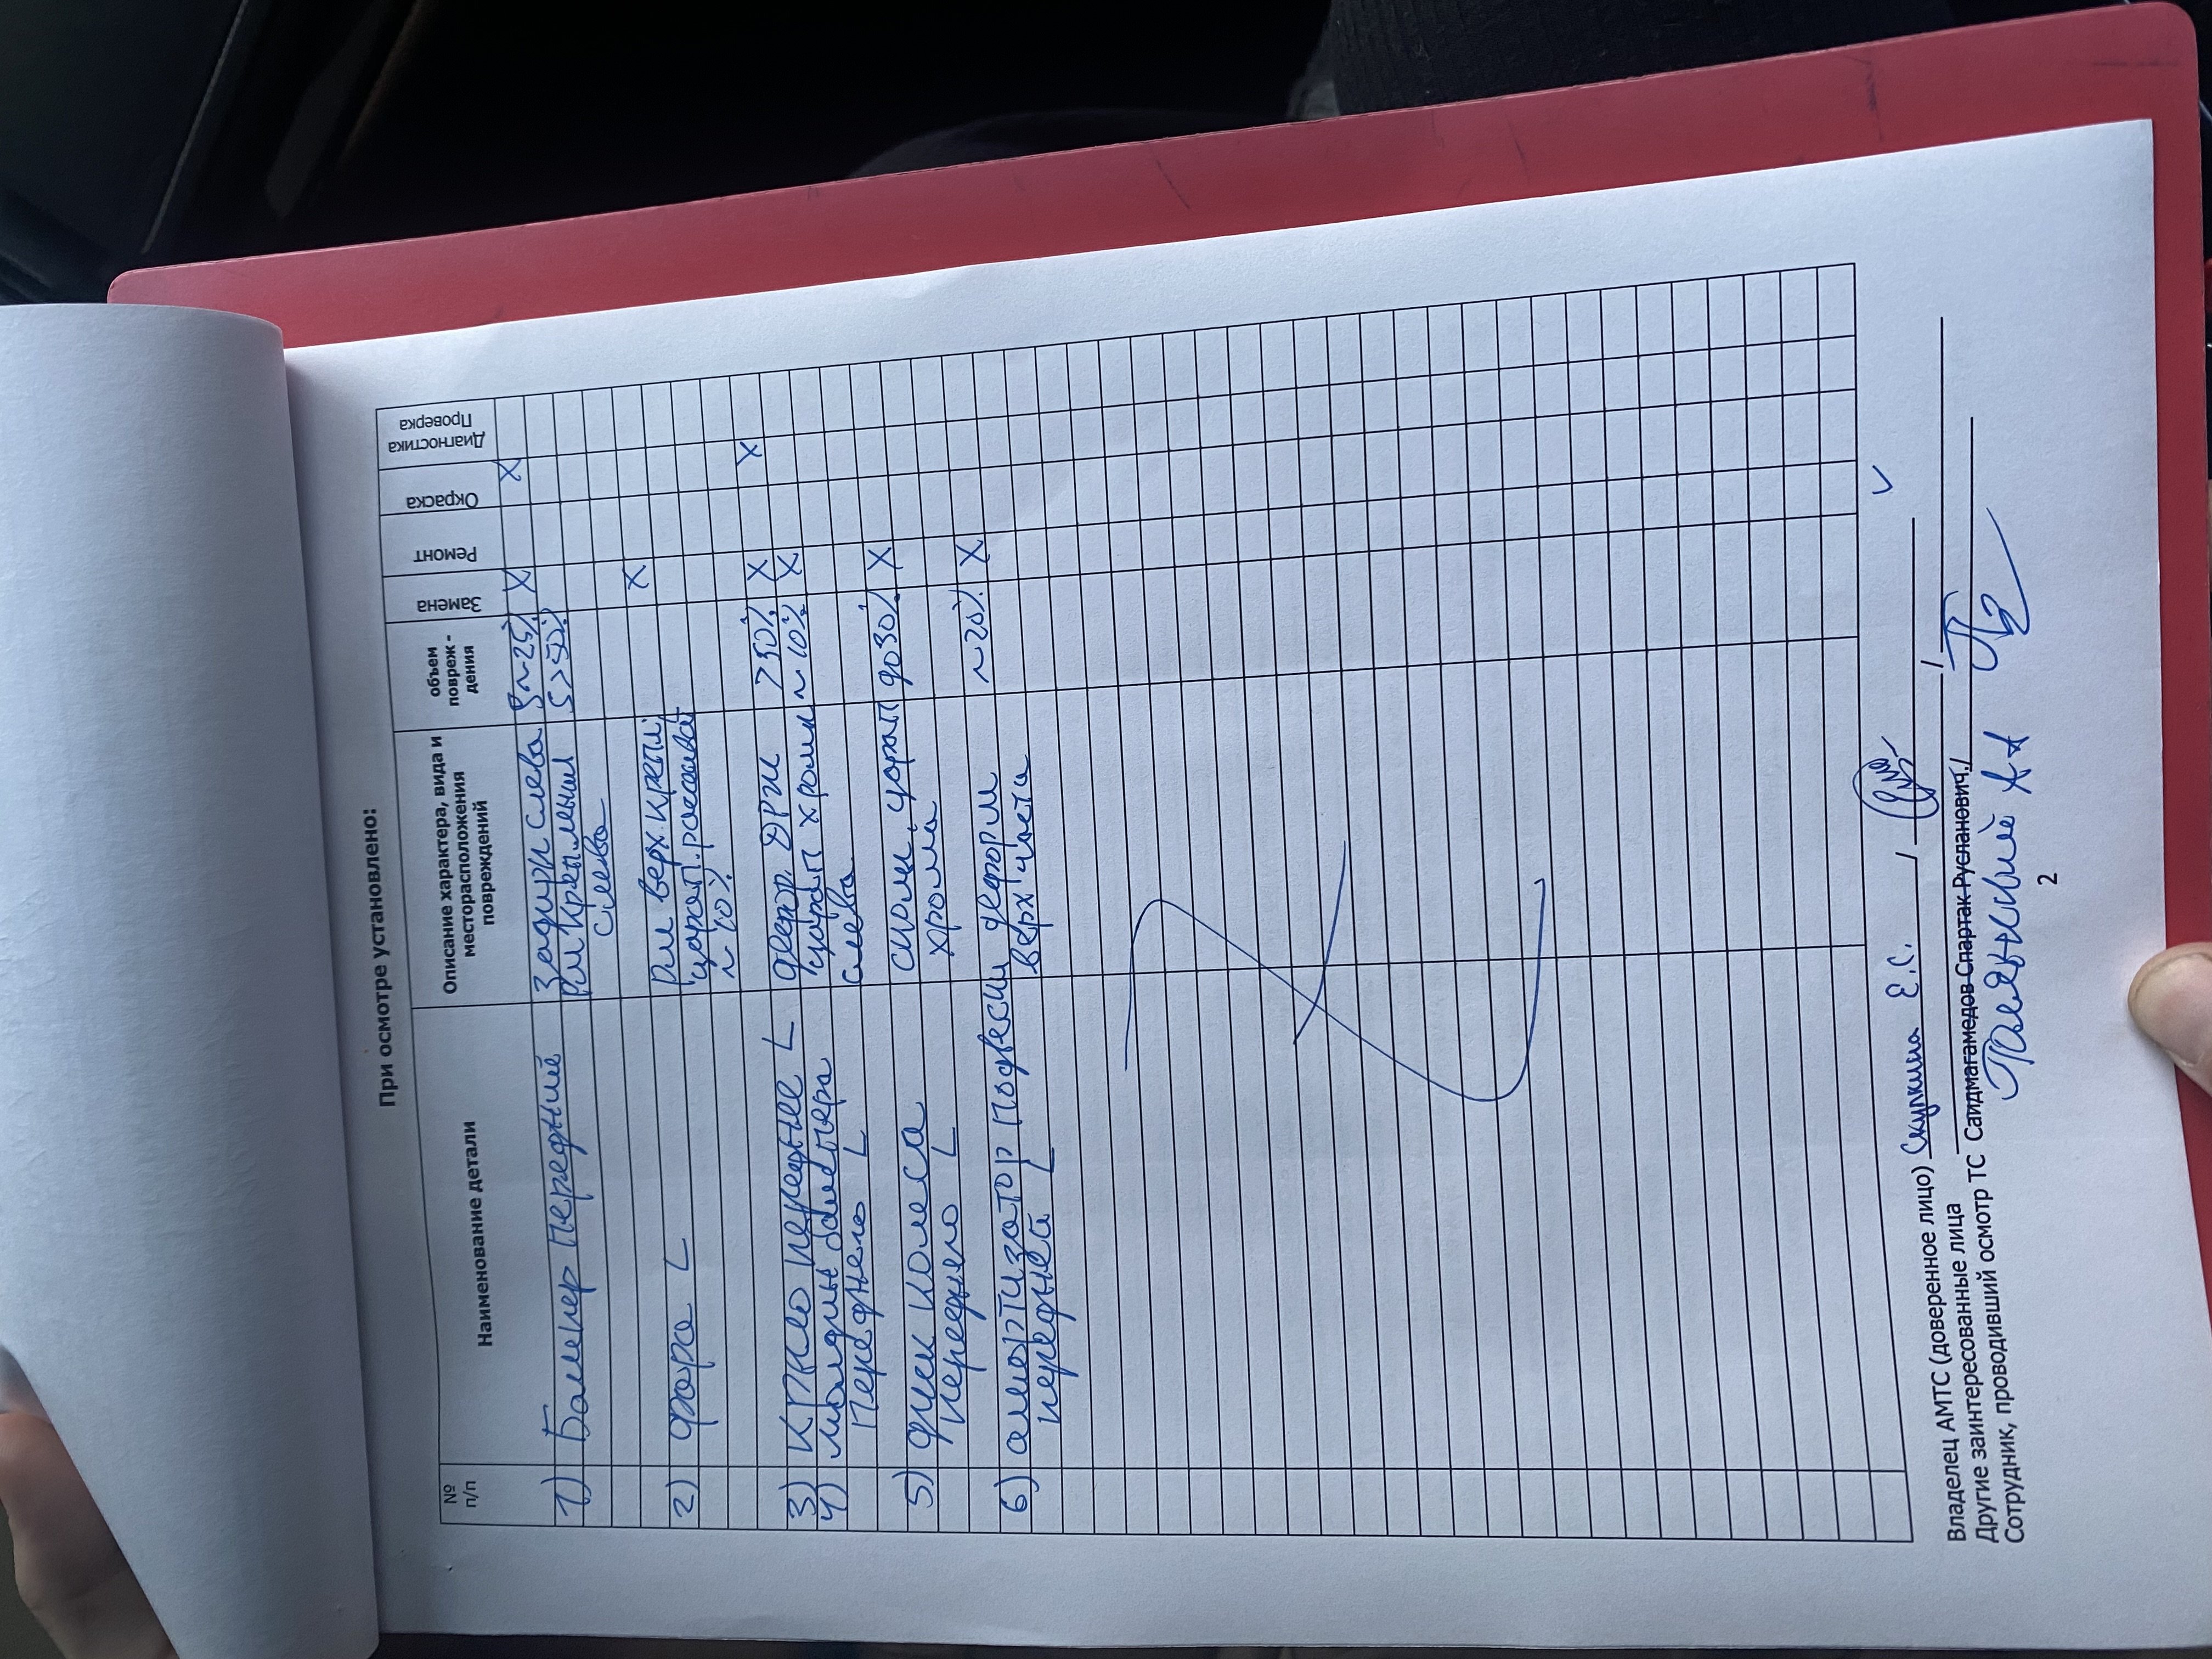 При осмотре установлено:
№ п/п Наименование детали Описание характера, вида и месторасположения повреждений объем повреж - дения Замена Ремонт Окраска Диагностика Проверка
1) Бампер передний задиры слева S~25% X X
крепления S>50%
слева
верх. крепл. X
2) фара L царап. рассеиват
~10%
X
3) крыло переднее L >50% X
4) молдинг бампера царап хрома ~10% X
переднего L слева
5) диск колеса сколы, царап до 30% X
переднего L хрома
6) амортизатор подвески деформ ~20% X
передней L верх части
Владелец АМТС (доверенное лицо) Скулкина Е.С. / /
Другие заинтересованные лица
Сотрудник, проводивший осмотр ТС Саидмагамедов Спартак Русланович /
2